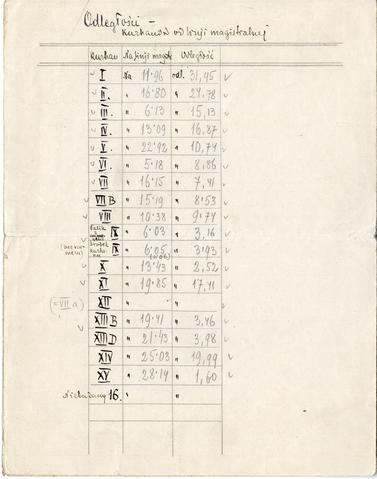 Odległości –
kurhanów od linji magistralnej
Kurhan Na linji magistr. Odległość
I Na 11·96 odl. 31,95
II. " 16·80 " 27·78
III. " 6·13 " 15,13
IV. " 13·09 " 16,87
V. " 22·92 " 10,77
VI. " 5·18 " 8,86
VII " 16·15 " 7,41
VII B " 15,19 " 8·53
VIII " 10·38 " 9·77
IX " 6·03 " 3,16
IX " 6,05 " 3·93
X " 13·43 " 2,52
XI " 19·85 " 17,41
(= VII a) XII " "
XIII B " 19·41 " 3,46
XIII D " 21·43 " 3,98
XIV " 25·03 " 19,99
XV " 28·14 " 1,60
Niebadany 16. " "